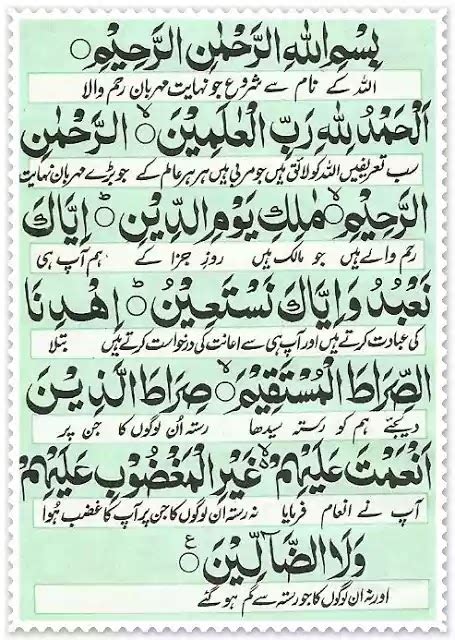 بِسْمِ اللهِ الرَّحْمٰنِ الرَّحِيْمِ ○
اللہ کے نام سے شروع جو نہایت مہربان رحم والا
اَلْحَمْدُ لِلّٰهِ رَبِّ الْعٰلَمِيْنَ ○ۙ الرَّحْمٰنِ
سب تعریفیں اللہ کو لائق ہیں جو مربی ہیں ہر ہر عالم کے جو بڑے مہربان نہایت
الرَّحِيْمِ ○ۙ مٰلِكِ يَوْمِ الدِّيْنِ ○ؕ اِيَّاكَ
رحم والے ہیں جو مالک ہیں روز جزا کے ہم آپ ہی
نَعْبُدُ وَ اِيَّاكَ نَسْتَعِيْنُ ○ؕ اِهْدِنَا
کی عبادت کرتے ہیں اور آپ ہی سے اعانت کی درخواست کرتے ہیں بتلا
الصِّرَاطَ الْمُسْتَقِيْمَ ○ۙ صِرَاطَ الَّذِيْنَ
دیجئے ہم کو رستہ سیدھا رستہ اُن لوگوں کا جن پر
اَنْعَمْتَ عَلَيْهِمْ ○ۙ غَيْرِ الْمَغْضُوْبِ عَلَيْهِمْ
آپ نے انعام فرمایا نہ رستہ ان لوگوں کا جن پر آپ کا غضب ہُوا
وَلَا الضَّآلِّيْنَ ○ع
اور نہ ان لوگوں کا جو رستہ سے گم ہو گئے